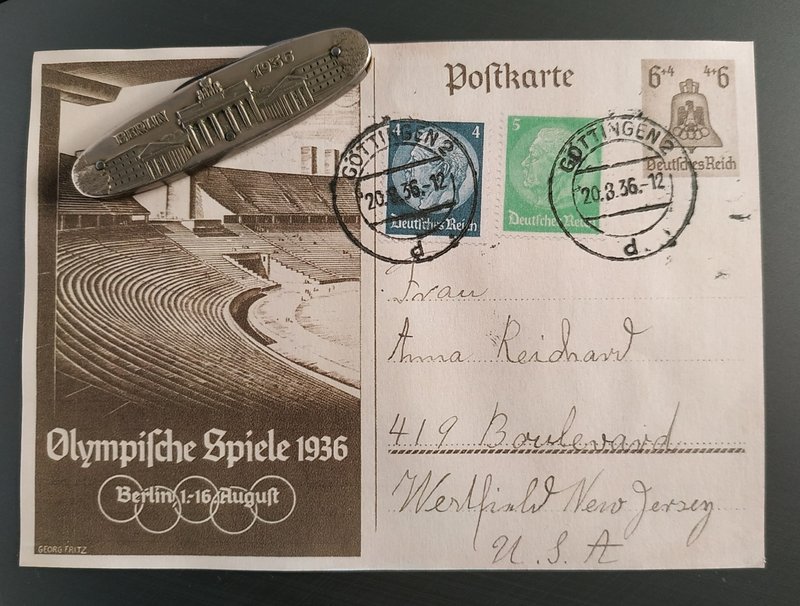 BERLIN 1936
Postkarte
6+4 4+6
Deutsches Reich
4 4
Deutsches Reich
5
Deutsches Reich
GÖTTINGEN 2
20.8.36.-12
p
GÖTTINGEN 2
20.8.36.-12
p
Frau
Anna Reichard
419 Boulevard
Westfield New Jersey
U. S. A
Olympische Spiele 1936
Berlin 1.-16. August
GEORG FRITZ